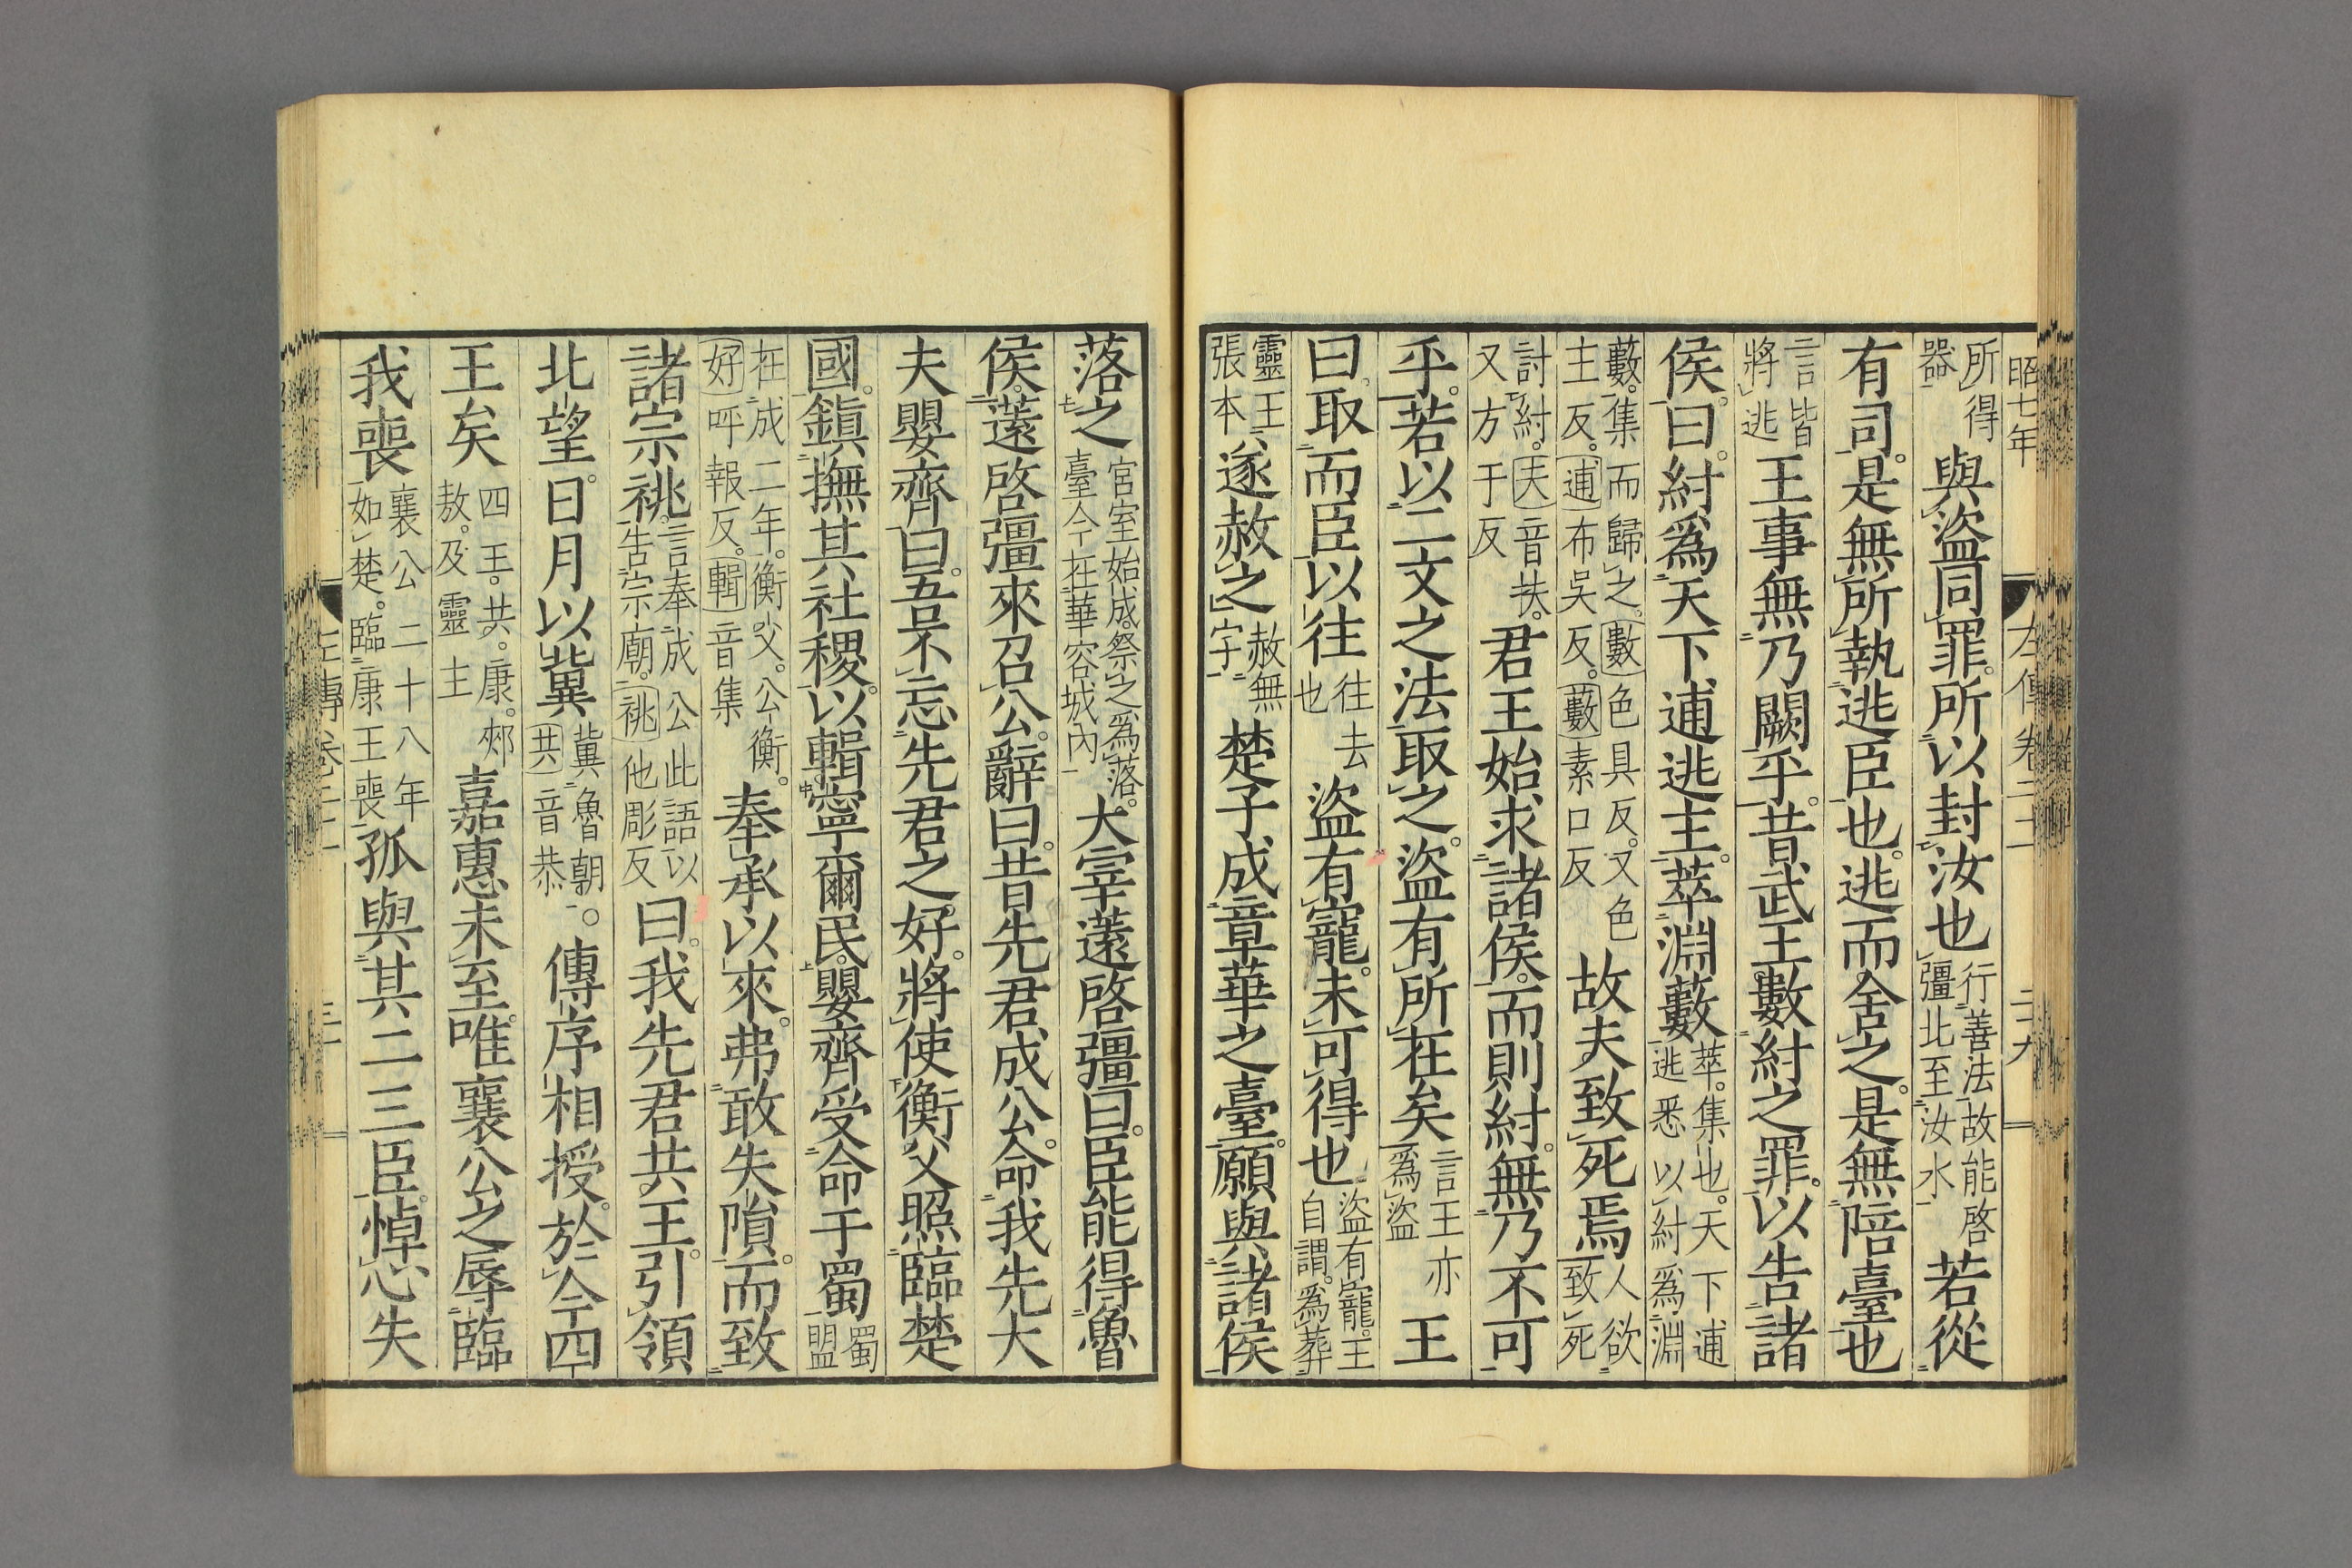 昭七年 左傳卷二十二 二十九
所得器 與盜同罪。所以封汝也 行善法故能啓疆北至汝水 若從
有司。是無所執逃臣也。逃而舍之。是無陪臺也
言皆將逃 王事無乃闕乎。昔武王數紂之罪。以告諸
侯。曰。紂爲天下逋逃主。萃淵藪 萃。集也。天下逋逃悉以紂爲淵
藪。集而歸之。數色具反。又色主反。逋布吳反。藪素口反 故夫致死焉 人欲致死
討紂。夫音扶。又方于反 君王始求諸侯。而則紂。無乃不可
乎。若以二文之法取之。盜有所在矣 言王亦爲盜 王
曰。取而臣以往 往去也 盜有寵。未可得也 盜有寵。王自謂。爲葬
靈王張本 遂赦之 赦無宇 楚子成章華之臺。願與諸侯
落之 宮室始成。祭之爲落。臺今在華容城內 大宰薳啓疆曰。臣能得魯
侯。薳啓疆來召公。辭曰。昔先君成公。命我先大
夫嬰齊曰。吾不忘先君之好。將使衡父照臨楚
國。鎮撫其社稷。以輯寧爾民。嬰齊受命于蜀 蜀盟
在成二年。衡父。公衡。好呼報反。輯音集 奉承以來。弗敢失隕。而致
諸宗祧。言奉成公此語以告宗廟。祧他彫反 曰。我先君共王。引領
北望。日月以冀 冀魯朝。共音恭 。傳序相授。於今四
王矣 四王。共。康。郟敖。及靈王 嘉惠未至。唯襄公之辱臨
我喪 襄公二十八年如楚。臨康王喪 孤與其二三臣。悼心失